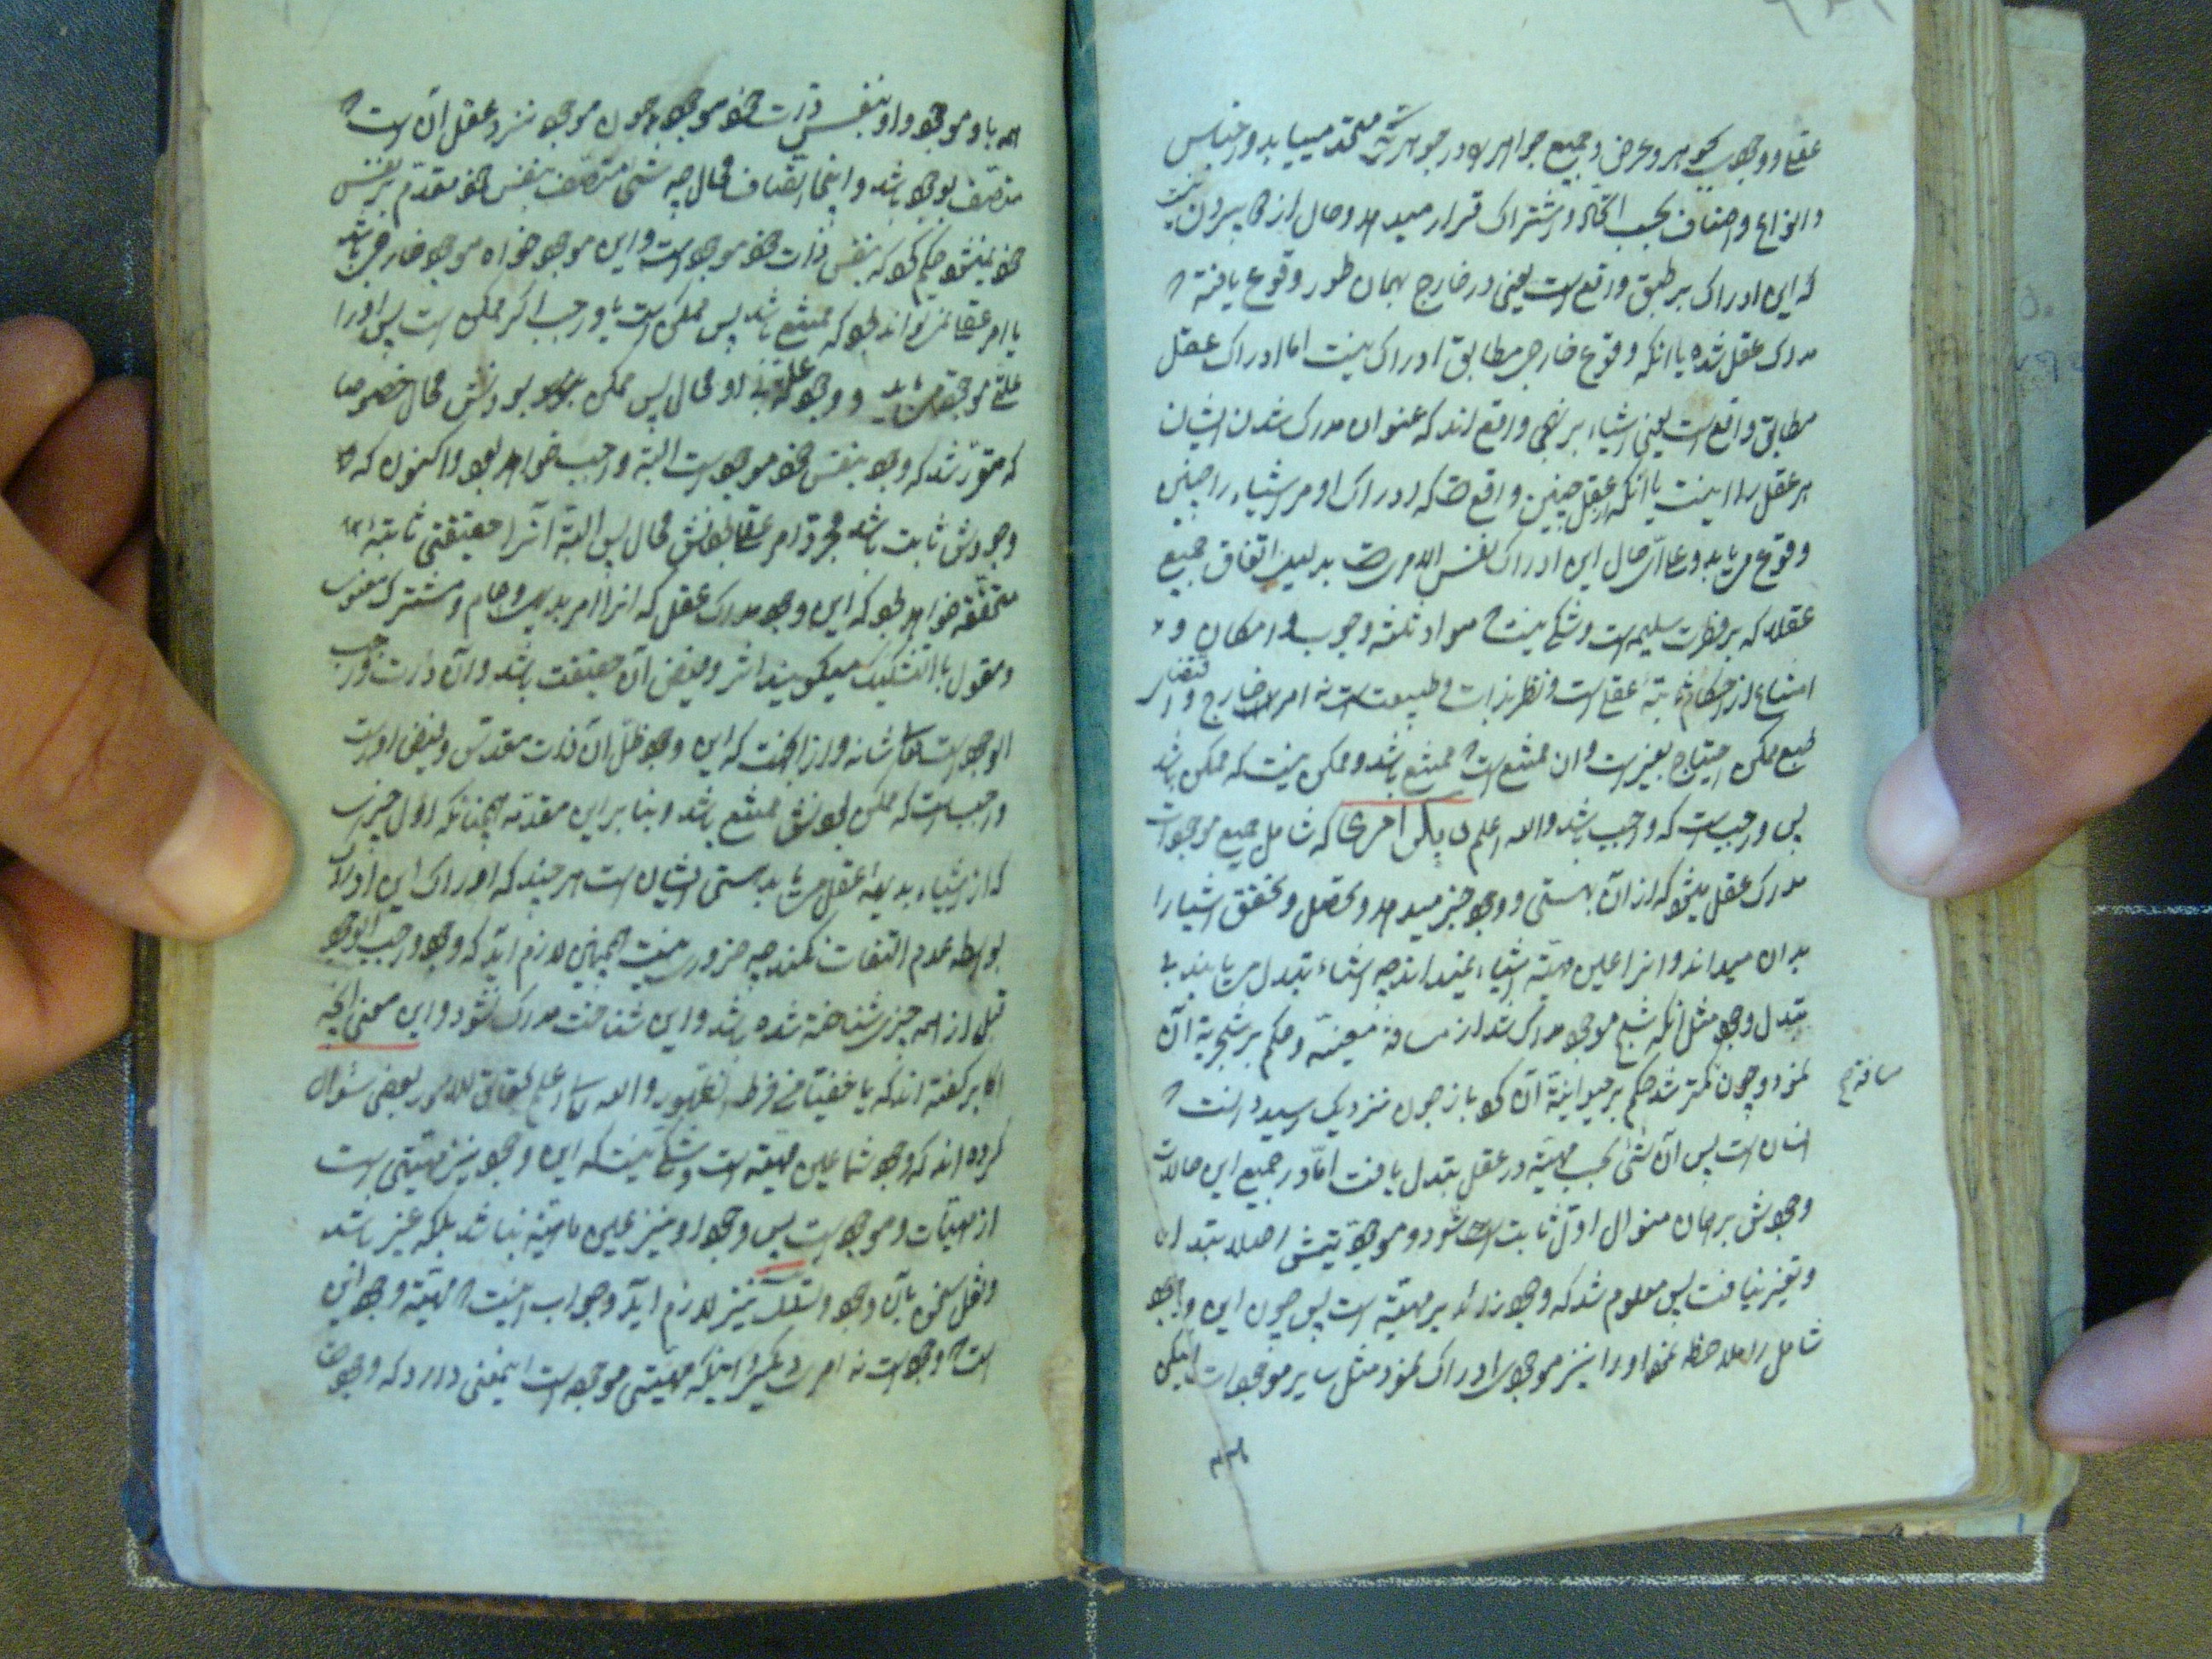 عقل و وجوب بجوهر و عرض و جمیع جواهر را در جوهریت متحد مییابد و اجناس
و انواع و اصناف بحسب اتحاد و اشتراک قرار میدهد و حال ازین بیرون نیست
که این ادراک بر طبق واقع است یعنی در خارج بهمان طور وقوع یافته
مدرک عقل شده یا انکه وقوع خارجی مطابق ادراک نیست اما ادراک عقل
مطابق واقع است یعنی اشیاء بر نهجی واقع اند که عنوان مدرک شدن ایشان
هر عقل را اینست یا انکه عقل چنین واقع است که ادراک او مر اشیاء را چنین
وقوع می یابد و علی ای حال این ادراک نفس الامری است بدلیل اتفاق جمیع
عقلا که بر فطرت سلیمه است و شکی نیست مواد ثلثه وجوب و امکان و
امتناع از احکام ثابته عقلی است و نظر بذات و طبیعت است نه امر خارج و اقتضای
طبع ممکن احتیاج بغیر است و ان ممتنع است ممتنع باشد و ممکن نیست که ممکن باشد
پس واجب است که واجب باشد والله اعلم بدان امری که شامل جمیع موجودات
مدرک عقل میشود که از آن بهستی و وجود خبر میدهد و تحصل و تحقق اشیا را
بدان میداند و انرا عین مهیة اشیاء نمیداند چه اشیاء تبدل می یابند بی
تبدل وجود مثل انکه شبح موجود مدرک شد از مسافة معینه و حکم بر شجریة آن
نمود و چون کمتر شد حکم بر حیوانیة آن کرد باز چون نزدیک رسید دانست
مسافة م
انسان است پس آن شئ بحسب مهیة در عقل تبدل یافت اما در جمیع این حالات
وجودش بر همان منوال اول ثابت است و موجودیتش اصلا تبدل
و تغییر نیافت پس معلوم شد که وجود زائد بر مهیة است پس چون این وجود
شامل را ملاحظه نمود او را نیز موجودی ادراک نمود مثل سایر موجودات لیکن
همه باو موجود و او بنفس ذات خود موجود چون موجود نزد عقل آن است
متصف بوجود باشد و اینجا اتصاف محال چه شئ متصف بنفس خود مقدم بر نفس
خود نمیشود حکم کرد که بنفس ذات خود موجود است و این موجود خواه موجود خارجی باشد
یا امر عقلی نمی تواند بود که ممتنع باشد پس ممکن است یا واجب اگر ممکن است پس او را
علتی موجود می باید و وجود علت بی او محال پس ممکن بودنش محال خصوصا
که مقرر شد که وجود بنفس خود موجود است البته واجب خواهد بود و اکنون که
وجودش ثابت باشد مجرد امر عقلی بودنش محال پس البته آنرا حقیقتی ثابته
متحققه خواهد بود که این وجود مدرک عقل که انرا امر بدیهی و عام و مشترک معنوی
و مقول بالتشکیک میگویند اثر و فیض آن حقیقت باشد و آن ذات واجب
الوجود است تعالی شانه و از اینجاست که این وجود ظل آن ذات مقدس و فیض اوست
واجب است که ممکن بودنش ممتنع باشد و بنا بر این مقدمه همچنانکه اول چیزی
که از اشیاء بدیهة عقل می یابد هستی ایشان است هر چند که ادراک این ادراک
بواسطه عدم التفات نکند چه ضرور نیست همچنین لازم آید که وجود واجب الوجود
قبل از همه چیز شناخته شده باشد و این شناخت مدرک نشود و این معنی انچه
اکابر گفته اند که یا خفیا من فرط الظهور والله تعالی اعلم بحقائق الامور بعضی سئوال
کرده اند که وجود شما عین مهیة است و شکی نیست که این وجود نیز مهیتی است
از مهیات و موجود است پس وجود او نیز عین ماهیة نباشد بلکه غیر باشد
و نقل سخن بآن وجود و تسلسل نیز لازم آید و جواب اینست مهیة وجود انی
است وجود است نه امری دیگر و اینکه مهیتی موجود است اینمعنی دارد که وجود